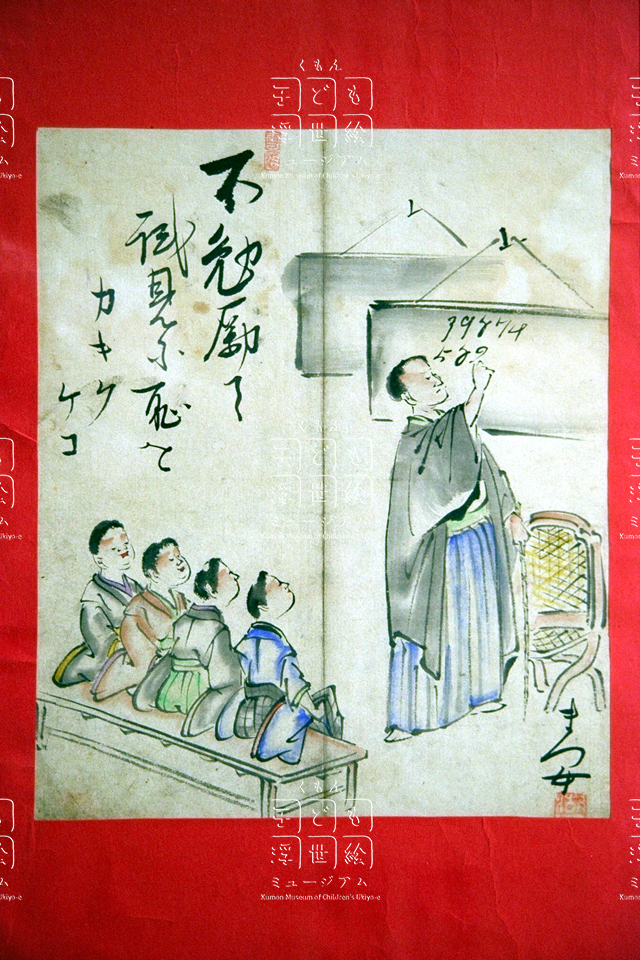 くもん
子ども
浮世絵
ミュージアム
Kumon Museum of Children's Ukiyo-e
不勉励て
試見尓恥を
カキク
ケコ
39874
589
くもん
子ども
浮世絵
ミュージアム
Kumon Museum of Children's Ukiyo-e
くもん
子ども
浮世絵
ミュージアム
Kumon Museum of Children's Ukiyo-e